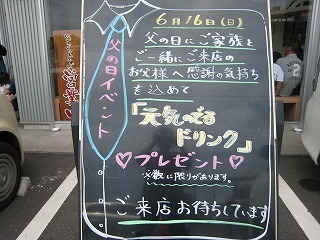 6月16日(日)
父の日イベント
父の日にご家族と
ご一緒にご来店の
お父様へ感謝の気持ち
を込めて
「元気のです
ドリンク」
♡プレゼント♡
※数に限りがあります。
ご来店お待ちしています